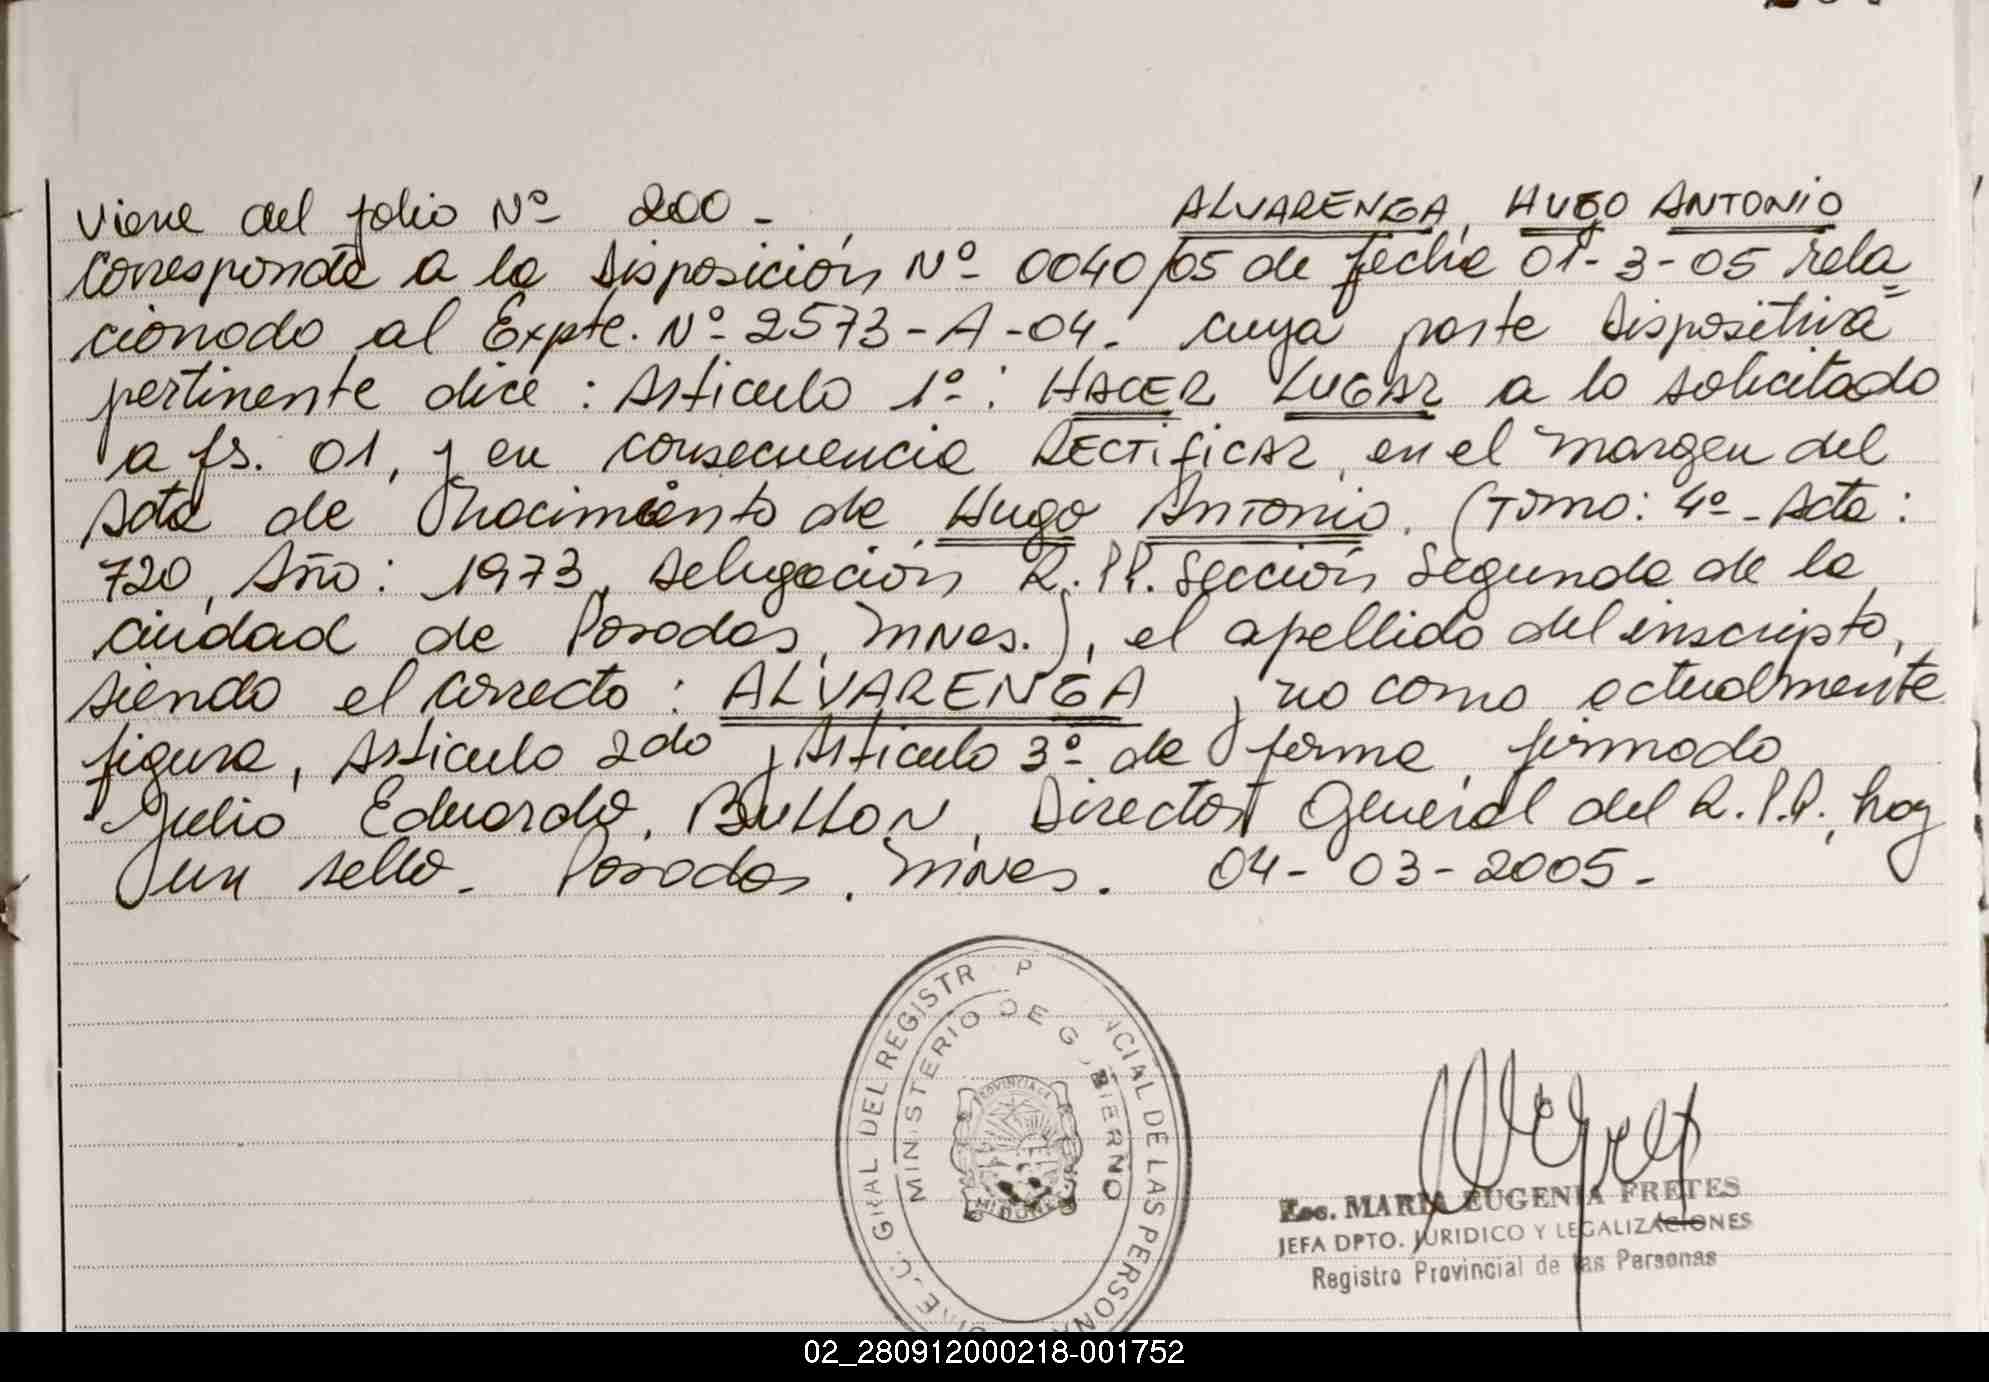 Viene del folio Nº 200 - ALVARENGA, HUGO ANTONIO
Corresponde a la Disposición Nº 0040/05 de fecha 01-3-05 rela=
cionado al Expte. Nº 2573-A-04. cuya parte Dispositiva
pertinente dice: Artículo 1º: HACER LUGAR a lo solicitado
a fs. 01, y en consecuencia RECTIFICAR en el margen del
Acta de Nacimiento de Hugo Antonio. (Tomo: 4º - Acta:
720, Año: 1973, Delegación R.P.P. Sección Segunda de la
ciudad de Posadas, Mnes.), el apellido del inscripto,
siendo el correcto: ALVARENGA y no como actualmente
figura, Artículo 2do y Artículo 3º de forma, firmado
Julio Eduardo, Button, Director General del R.P.P. hay
un sello. Posadas, Mnes. 04-03-2005-
GRAL DEL REGISTR P NCIAL DE LAS PERSONA
MINISTERIO DE GOBIERNO
PROVINCIA DE
MISIONES
Esc. MARIA EUGENIA FRETES
JEFA DPTO. JURIDICO Y LEGALIZACIONES
Registro Provincial de las Personas
02_280912000218-001752